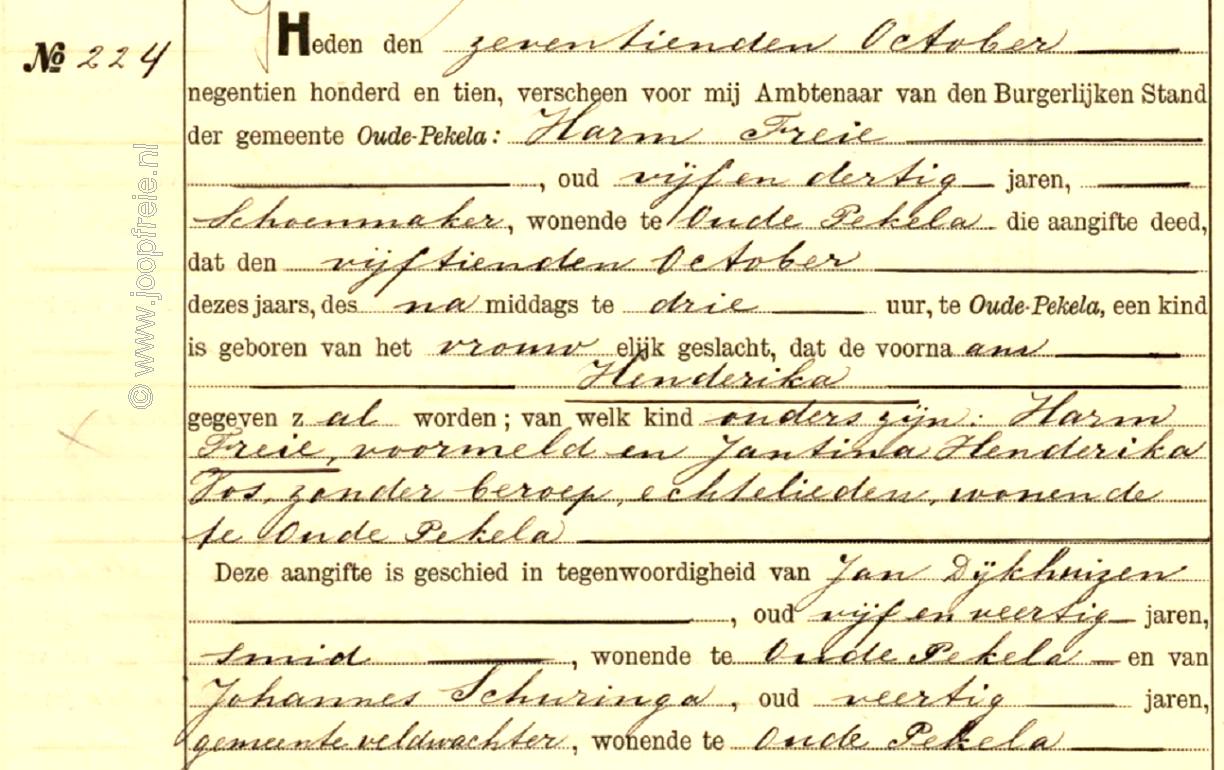 Nº 224
Heden den zeventienden October
negentien honderd en tien, verscheen voor mij Ambtenaar van den Burgerlijken Stand
der gemeente Oude-Pekela: Harm Freie
, oud vijf en dertig jaren,
Schoenmaker, wonende te Oude Pekela die aangifte deed,
dat den vijftienden October
dezes jaars, des na middags te drie uur, te Oude-Pekela, een kind
is geboren van het vrouw elijk geslacht, dat de voorna am
Henderika
gegeven z al worden; van welk kind ouders zijn: Harm
Freie, voormeld en Jantina Henderika
Vos, zonder beroep, echtelieden, wonende
te Oude Pekela
Deze aangifte is geschied in tegenwoordigheid van Jan Dijkhuizen
, oud vijf en veertig jaren,
smid, wonende te Oude Pekela en van
Johannes Schuringa, oud veertig jaren,
gemeente veldwachter, wonende te Oude Pekela
© www.joopfreie.nl